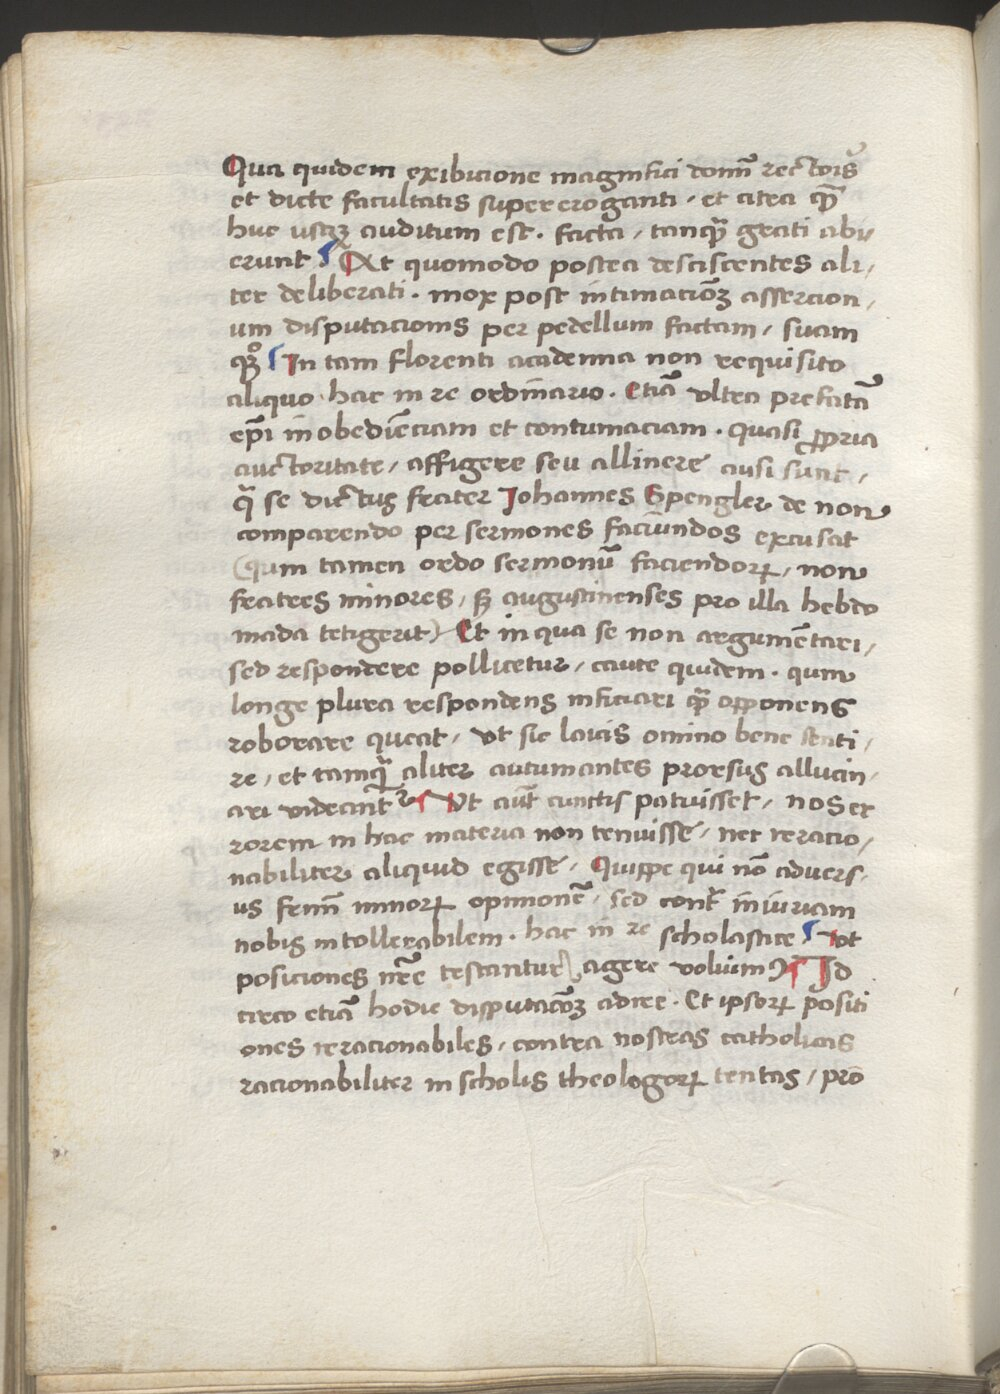 Qua quidem exibicione magnifici domĩ rectoris
et dicte facultatis supereroganti · et citra q̃
huc usqꝫ auditum est · facta / tanq̃ grati abi⸗
erunt · At quomodo postea desciscentes ali⸗
ter deliberati · mox post intimacioꝫ assercion⸗
um disputacionis per pedellum factam / suam
In tam florenti academia non requisito
aliquo hac in re ordinario · Etiã ultra prefatã
ep̃i inobediẽciam et contumaciam · quasi ꝓpria
auctoritate / affigere seu allinere ausi sunt /
q̃ se dictus frater Johannes Spengler de non
comparendo per sermones faciundos excusat
(qum tamen ordo sermonũ faciendoꝝ / non
fratres minores / sꝫ augustinenses pro illa hebdo
mada tetigerit) Et in qua se non argumẽtari /
sed respondere pollicetur / caute quidem · qum
longe plura respondens inficiari q̃ opponens
roborare queat / ut sic laicis omĩno bene senti⸗
re / et tamq̃ aliter autumantes prorsus allucin⸗
ari videant̃ Ut aũt cunctis patuisset / nos er
rorem in hac materia non tenuisse / nec irracio⸗
nabiliter aliquid egisse / Quippe qui nõ advers⸗
us minoꝝ opinionẽ / sed cont̃ iniuriam
nobis intollerabilem · hac in re scholastice / ut
posiciones nr̃e testantur) agere voluim9 Id
circo etiã hodie disputacõꝫ adire · Et ipsoꝝ positi
ones irracionabiles / contra nostras catholicas
racionabiliter in scholis theologoꝝ tentas / pro